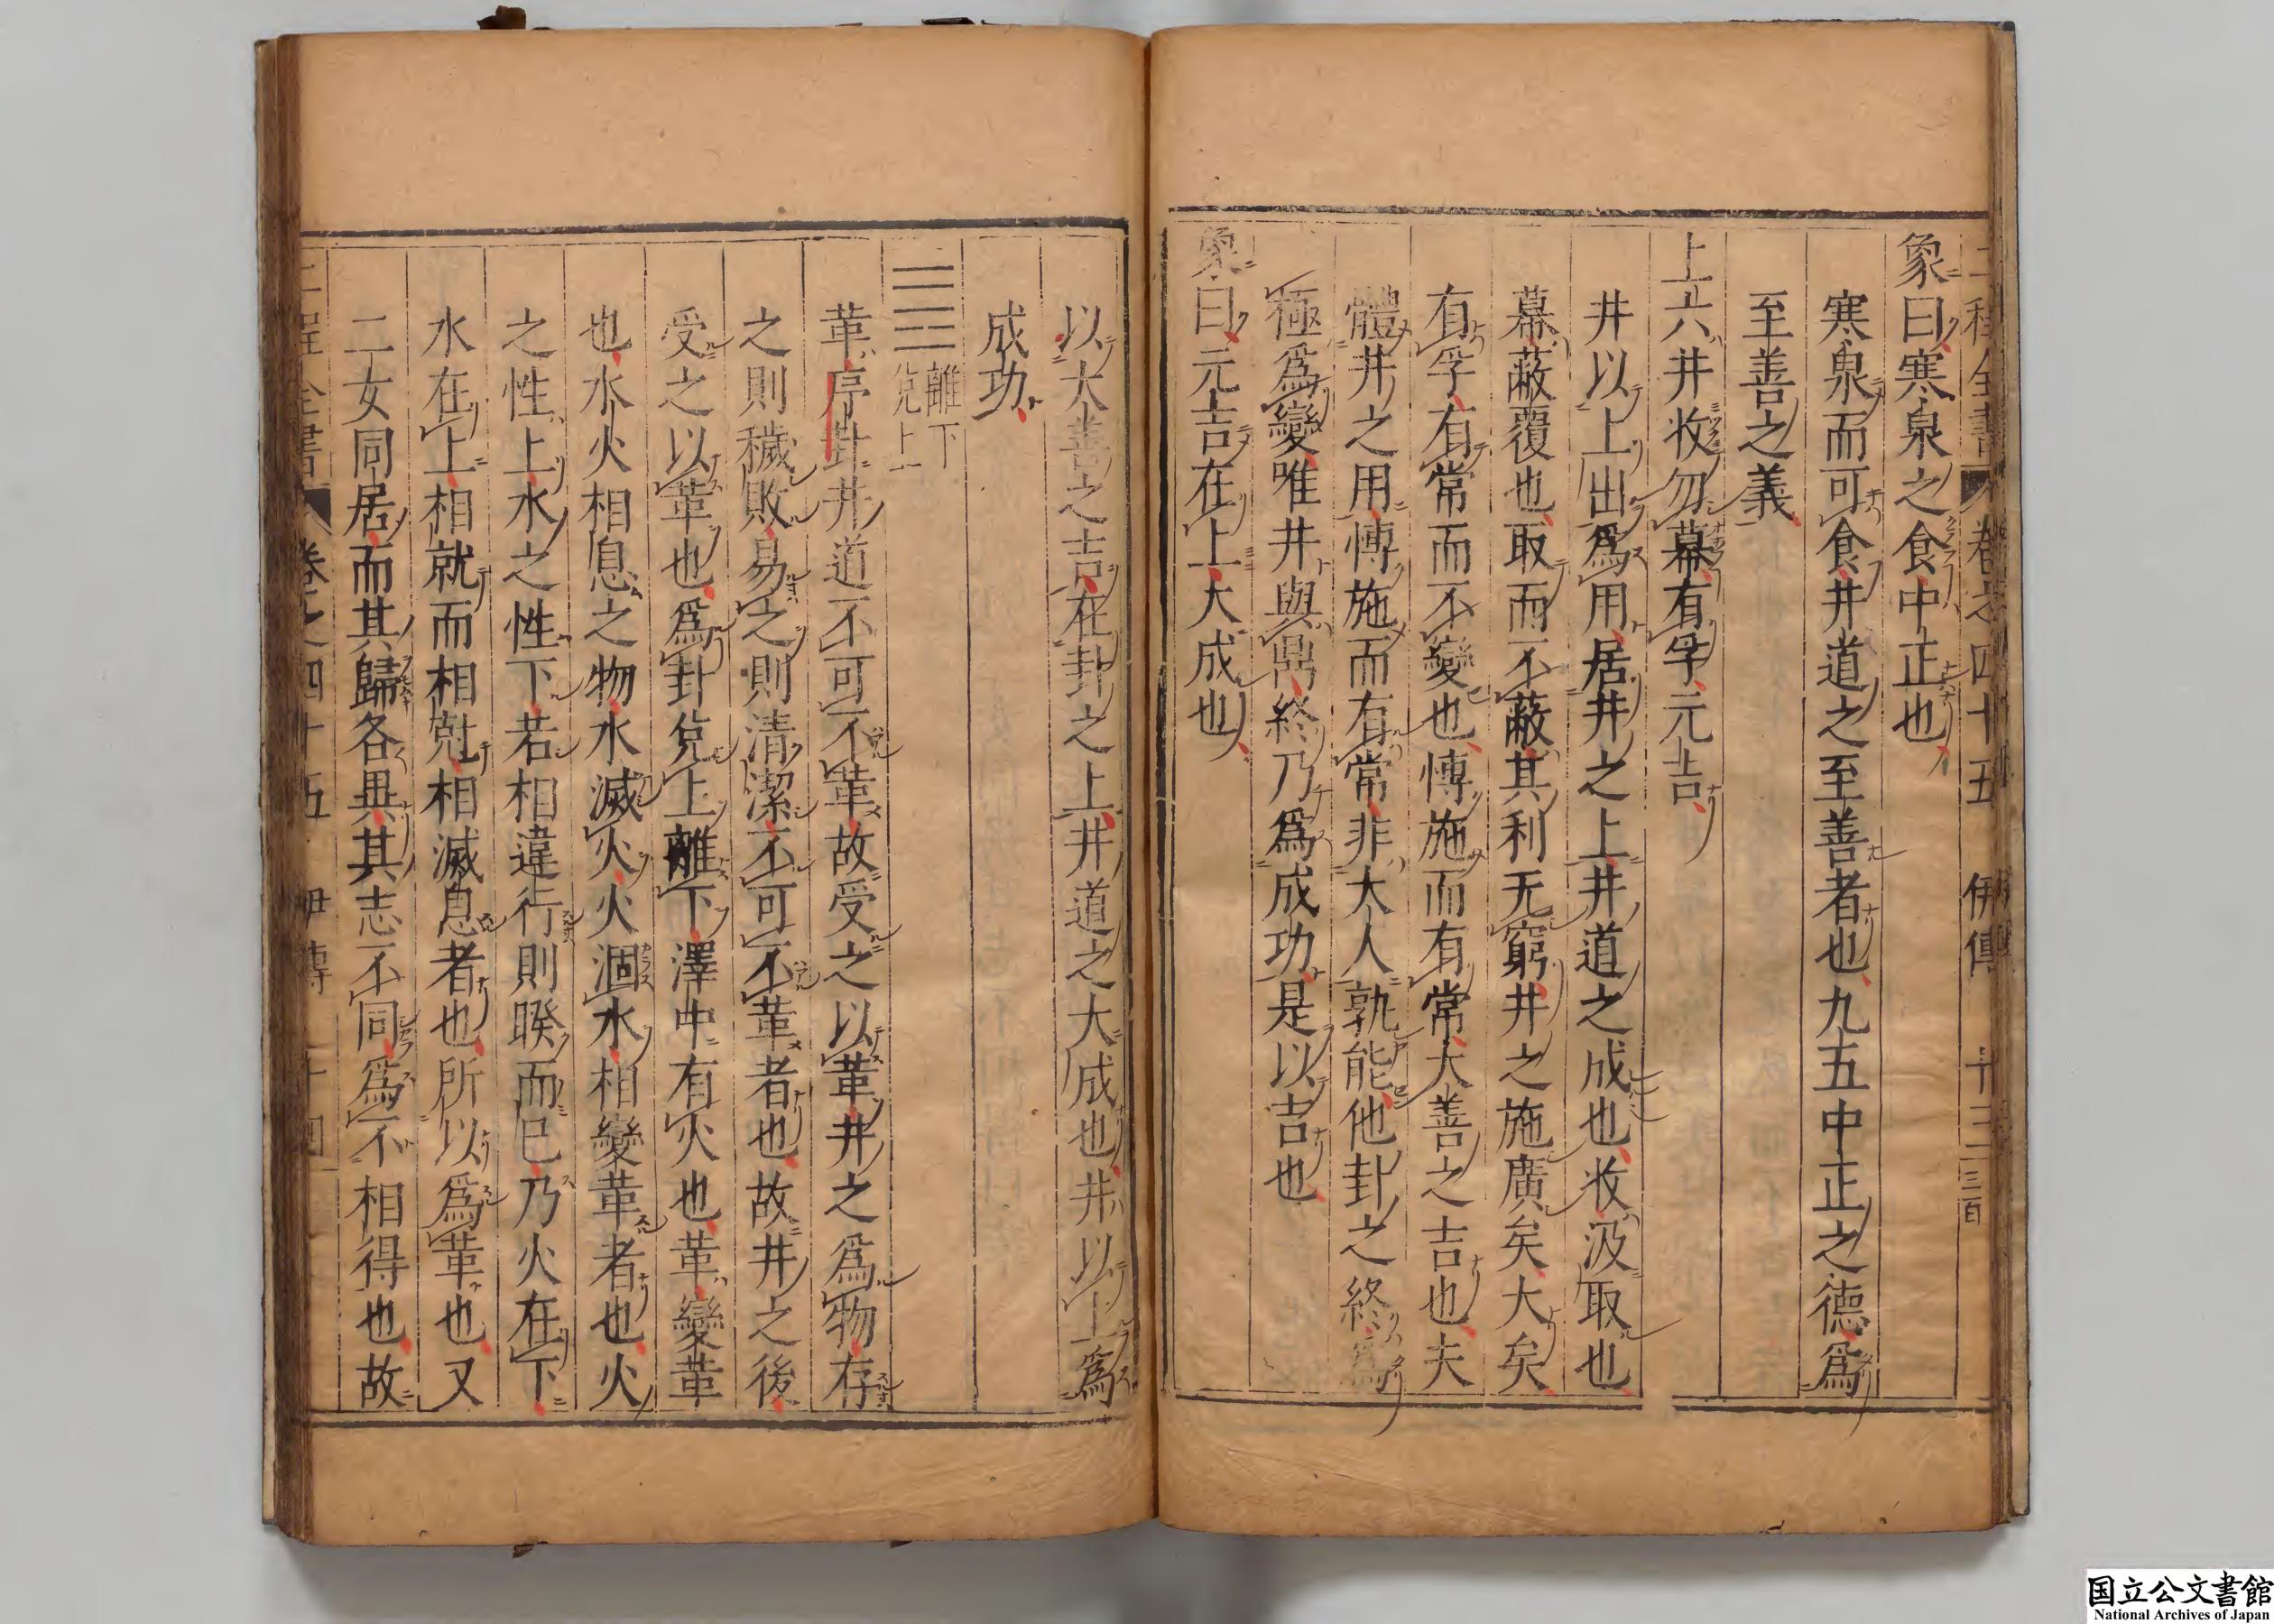 二程全書 卷之四十五 伊傳 卅三 三百
象曰寒泉之食中正也
寒泉而可食井道之至善者也九五中正之德爲
至善之義
上六井收勿幕有孚元吉
井以上出爲用居井之上井道之成也收汲取也
幕蔽覆也取而不蔽其利无窮井之施廣矣大矣
有孚有常而不變也博施而有常大善之吉也夫
體井之用博施而有常非大人孰能他卦之終爲
極爲變唯井與鼎終乃爲成功是以吉也
象曰元吉在上大成也
以大善之吉在卦之上井道之大成也井以上爲
成功
離下
兌上
革序卦井道不可不革故受之以革井之爲物存
之則穢敗易之則清潔不可不革者也故井之後
受之以革也爲卦兌上離下澤中有火也革變革
也水火相息之物水滅火火涸水相變革者也火
之性上水之性下若相違行則睽而已乃火在下
水在上相就而相剋相滅息者也所以爲革也又
二女同居而其歸各異其志不同爲不相得也故
二程全書 卷之四十五 伊傳
国立公文書館
National Archives of Japan